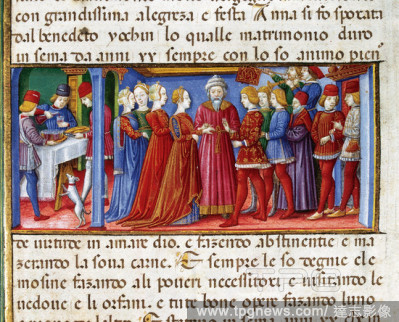 con grandissima alegreza e festa Anna si fo sponsata
dal benedeto yochin lo qualle matrimonio duro
in sema da anni xx sempre con lo so animo pien
de virtude in amare dio. e fazendo abstinentie e ma
zerando la soua carne. Et sempre le so degnie ele
mosine fazando ali poueri necessitosi e uisitando le
uedoue e li orfani. e tute bone opere fazando
www.tpgnews.com 達志影像